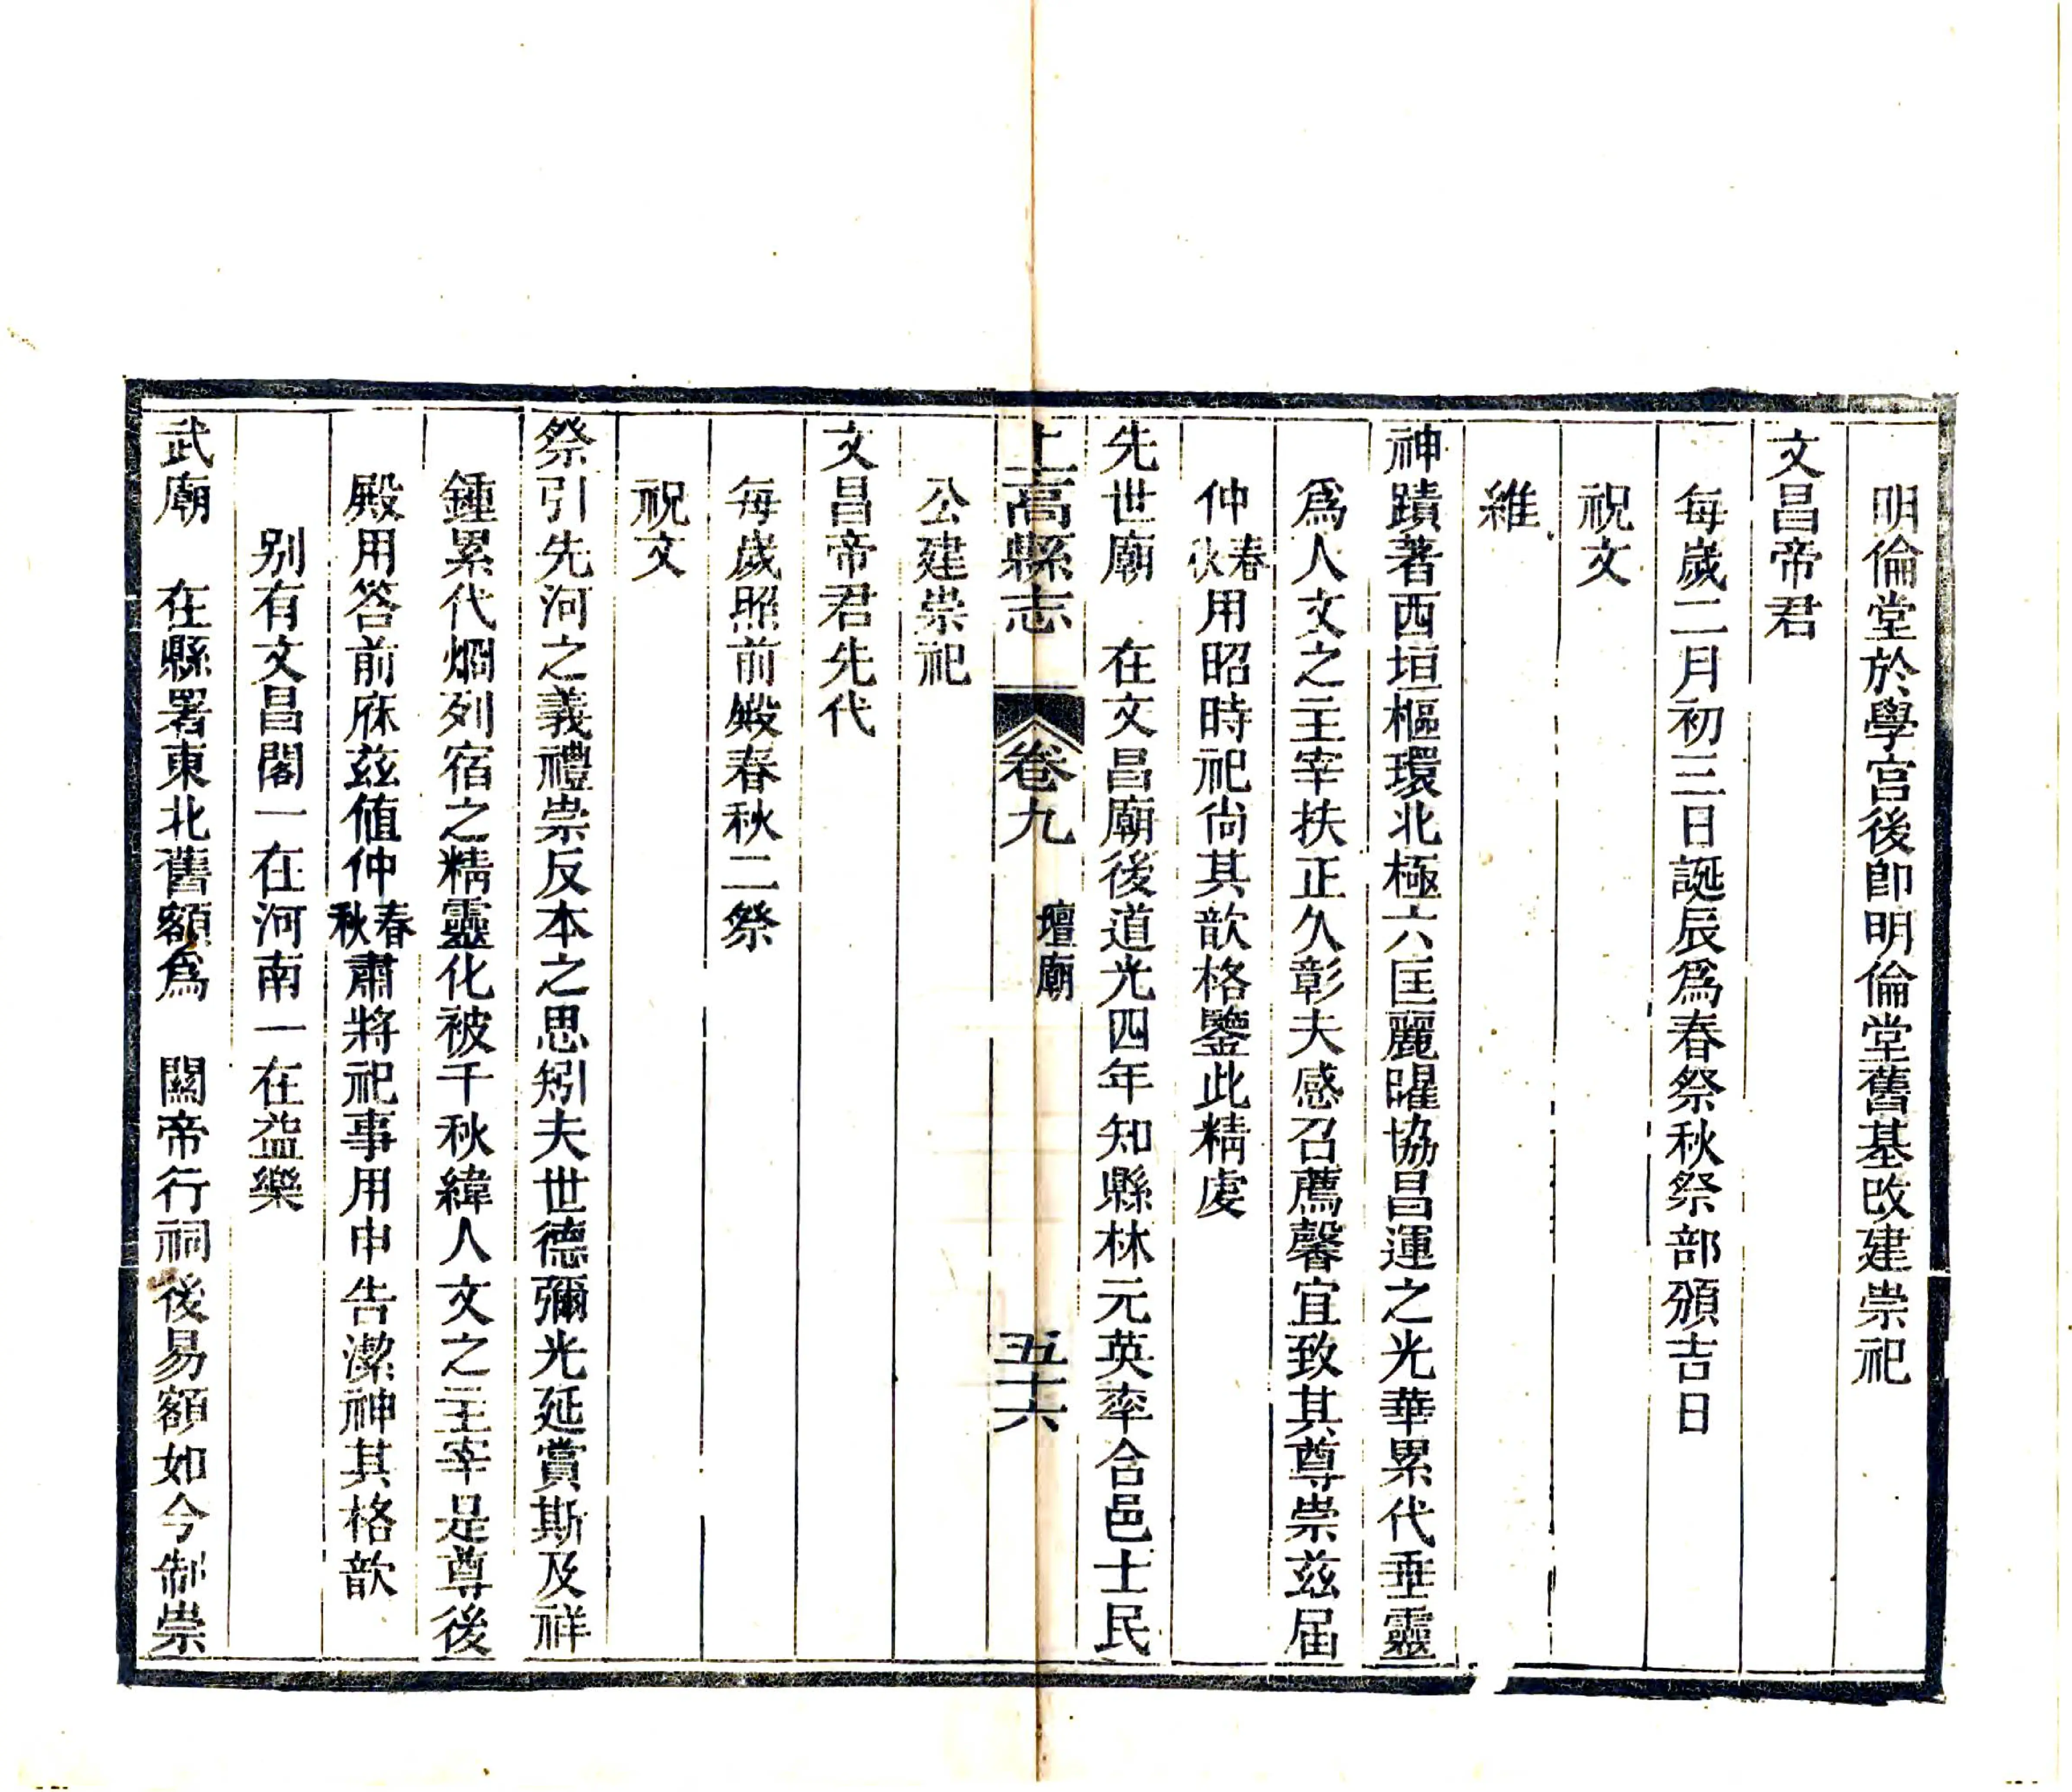 明倫堂於學宫後卽明倫堂舊基改建崇祀
文昌帝君
每歲二月初三日誕辰爲春祭秋祭部頒吉日
祝文
維
神蹟著西垣樞環北極六匡麗曜協昌運之光華累代垂靈
爲人文之主宰扶正久彰夫感召薦馨宜致其尊崇兹届
仲春秋用昭時祀尙其歆格鑒此精虔
先世廟　在文昌廟後道光四年知縣林元英率合邑士民
上高縣志　卷九　壇廟　五十六
公建崇祀
文昌帝君先代
每歲照前殿春秋二祭
祝文
祭引先河之義禮崇反本之思矧夫世德彌光延賞斯及祥
鍾累代烱列宿之精靈化被千秋緯人文之主宰是尊後
殿用答前庥兹値仲春秋肅將祀事用申告潔神其格歆
别有文昌閣一在河南一在益樂
武廟　在縣署東北舊額爲　關帝行祠後易額如今制崇